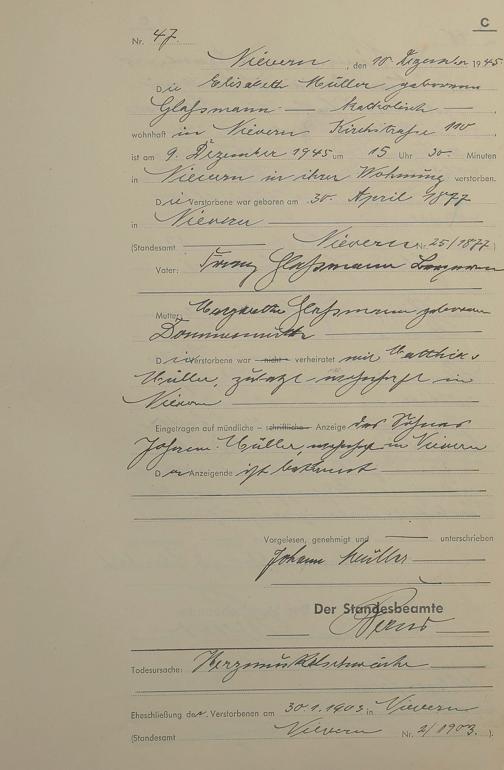 C
Nr. 47.
Nievern, den 10. Dezember 1945
Die Elisabeth Müller geborene
Glaßmann — Katholisch —
wohnhaft in Nievern Kirchstraße 110
ist am 9. Dezember 1945 um 15 Uhr 30 Minuten
in Nievern in ihrer Wohnung verstorben.
Die Verstorbene war geboren am 30. April 1877
in Nievern
(Standesamt Nievern Nr. 25/1877)
Vater: Franz Glaßmann
Mutter: Margarethe Glaßmann geborene
Die Verstorbene war nicht verheiratet mit Matthias
Müller, zuletzt wohnhaft in
Nievern
Eingetragen auf mündliche – schriftliche – Anzeige des Sohnes
Johann Müller, wohnhaft in Nievern
Der Anzeigende ist bekannt
Vorgelesen, genehmigt und unterschrieben
Johann Müller
Der Standesbeamte
Todesursache: Herzmuskelschwäche
Eheschließung der Verstorbenen am 30.1.1903 in Nievern
(Standesamt Nievern Nr. 2/1903.)